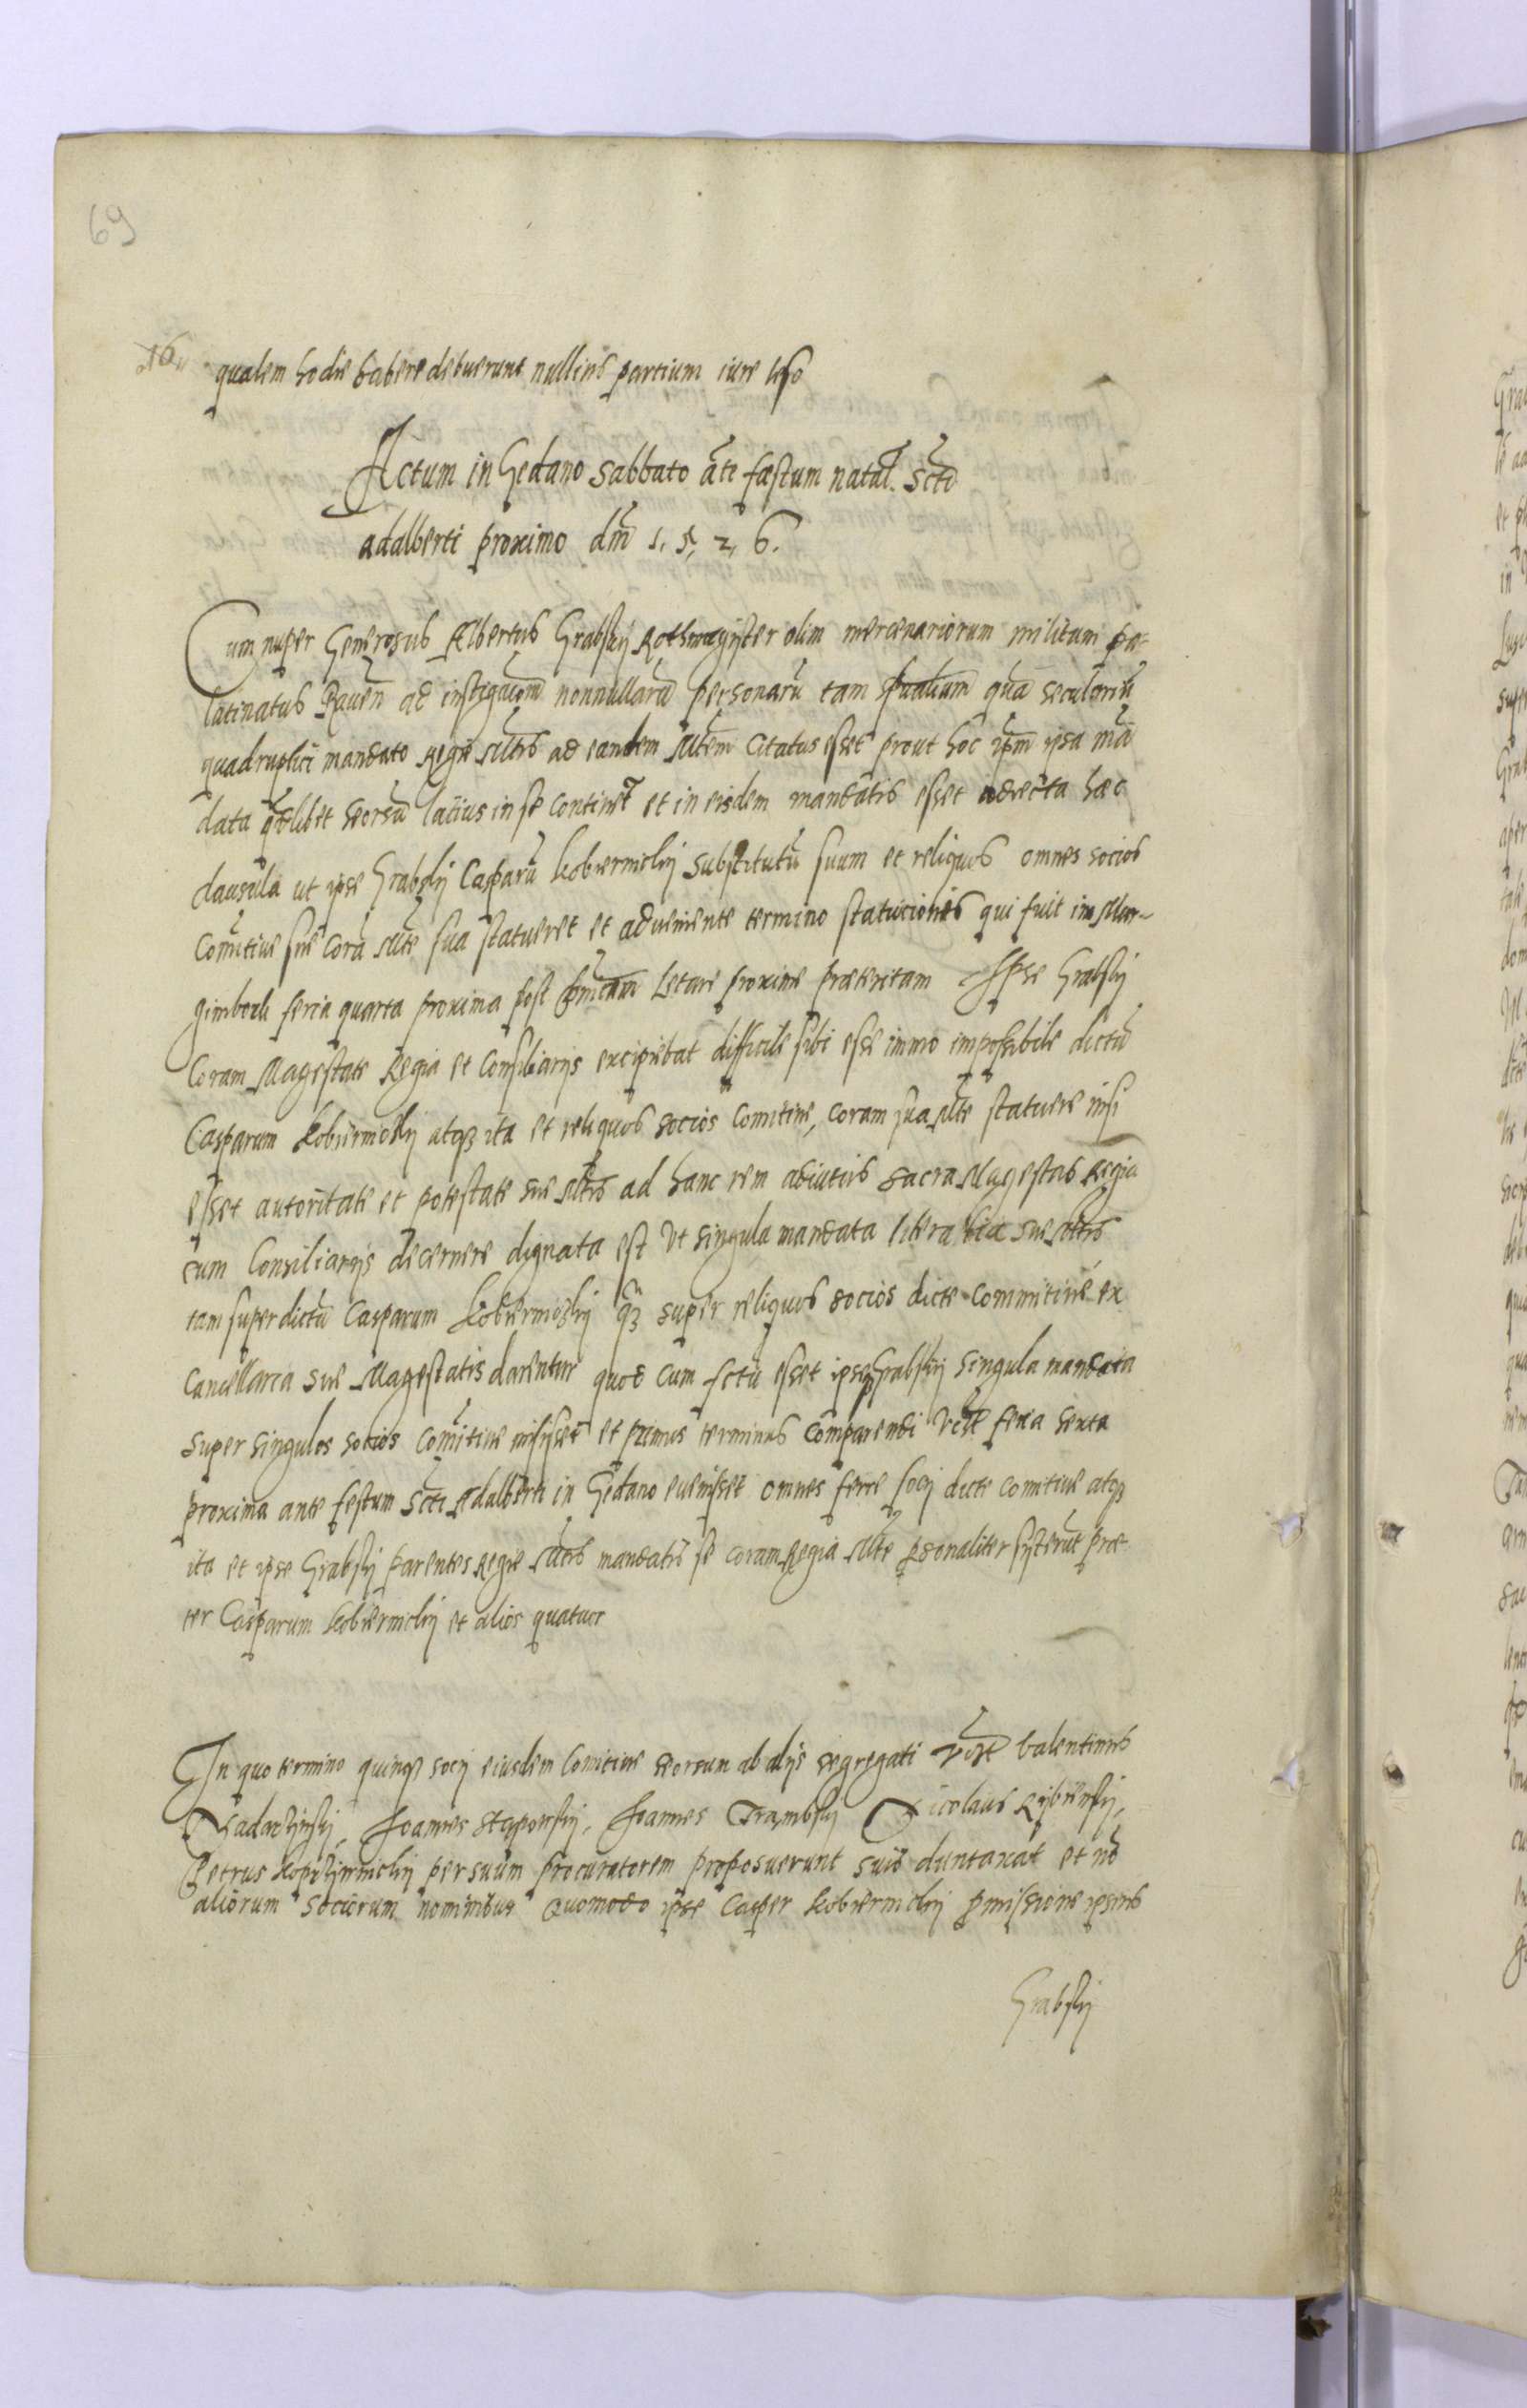 69
16
qualem hodie habere debuerunt nullius partium iure leso
Actum in Gedano Sabbato ãte fæstum natał. Sctĩ
adalberti proximo dm̃ 1. 5. 2. 6.
Cum nuper Generosus Albertus Grabskij Rothmagister olim mercenariorum militum pa-
latinatus Raueñ ad instigacõm nonnullarũ personarũ tam spũalium quã seculariũ
quadruplici mandato Regie Mtis ad eandem Mtẽm Citatus esset prout hoc ipm̃ ipsa mã
data qdlibet seorsũ latius in se continet et in eisdem mandatis esset adiecta hæc
clausula ut ipse Grabskij Casparũ kobiernickij substitutũ suum et reliquos omnes socios
Comitiue sue Corã Mte sua statueret et adueniente termino statucionis qui fuit in Mar-
gimbork feria quarta proxima post dm̃icam Letare proxime præteritam Ipse Grabskij
Coram Magestate Regia et Consiliarijs excipiebat difficile sibi esse immo impossibile dictũ
Casparum kobiernickij atq3 ita et reliquos socios Comitiue, coram sua Mte statuere nisi
esset autoritate et potestate sue Mtis ad hanc rem adiutus Sacra Magestas Regia
cum Consiliarijs decernere dignata est Vt singula mandata litera lia sue Mtis
tam super dictũ Casparum kobiernickij q3 super reliquos socios dicte Commitiue ex
Cancellarea sue Magestatis darentur quod cum fctũ esset ipse Grabskij singula mandata
super singulos socios Comitiue misisset et primus terminus comparendi feria sexta
proxima ante festum Scti Adalberti in Gedano euenisset omnes ferre socij dicte comitiue atq3
ita et ipse Grabskij parentes Regie Mtis mandatis se coram Regia Mte psonaliter sisterũt præ-
ter Casparum kobiernickij et alios quatuor
In quo termino quinq3 socij eiusdem Comitiue seorsum ab alijs segregati Valentinus
Joannes Joannes Trambskij Nicolaus Rijbienskij,
Petrus per suum procuratorem proposuerunt suis duntaxat et nõ
aliorum sociorum nominibus Quomodo ipse Casper kobiernickij pmissione ipsius
Grabskij